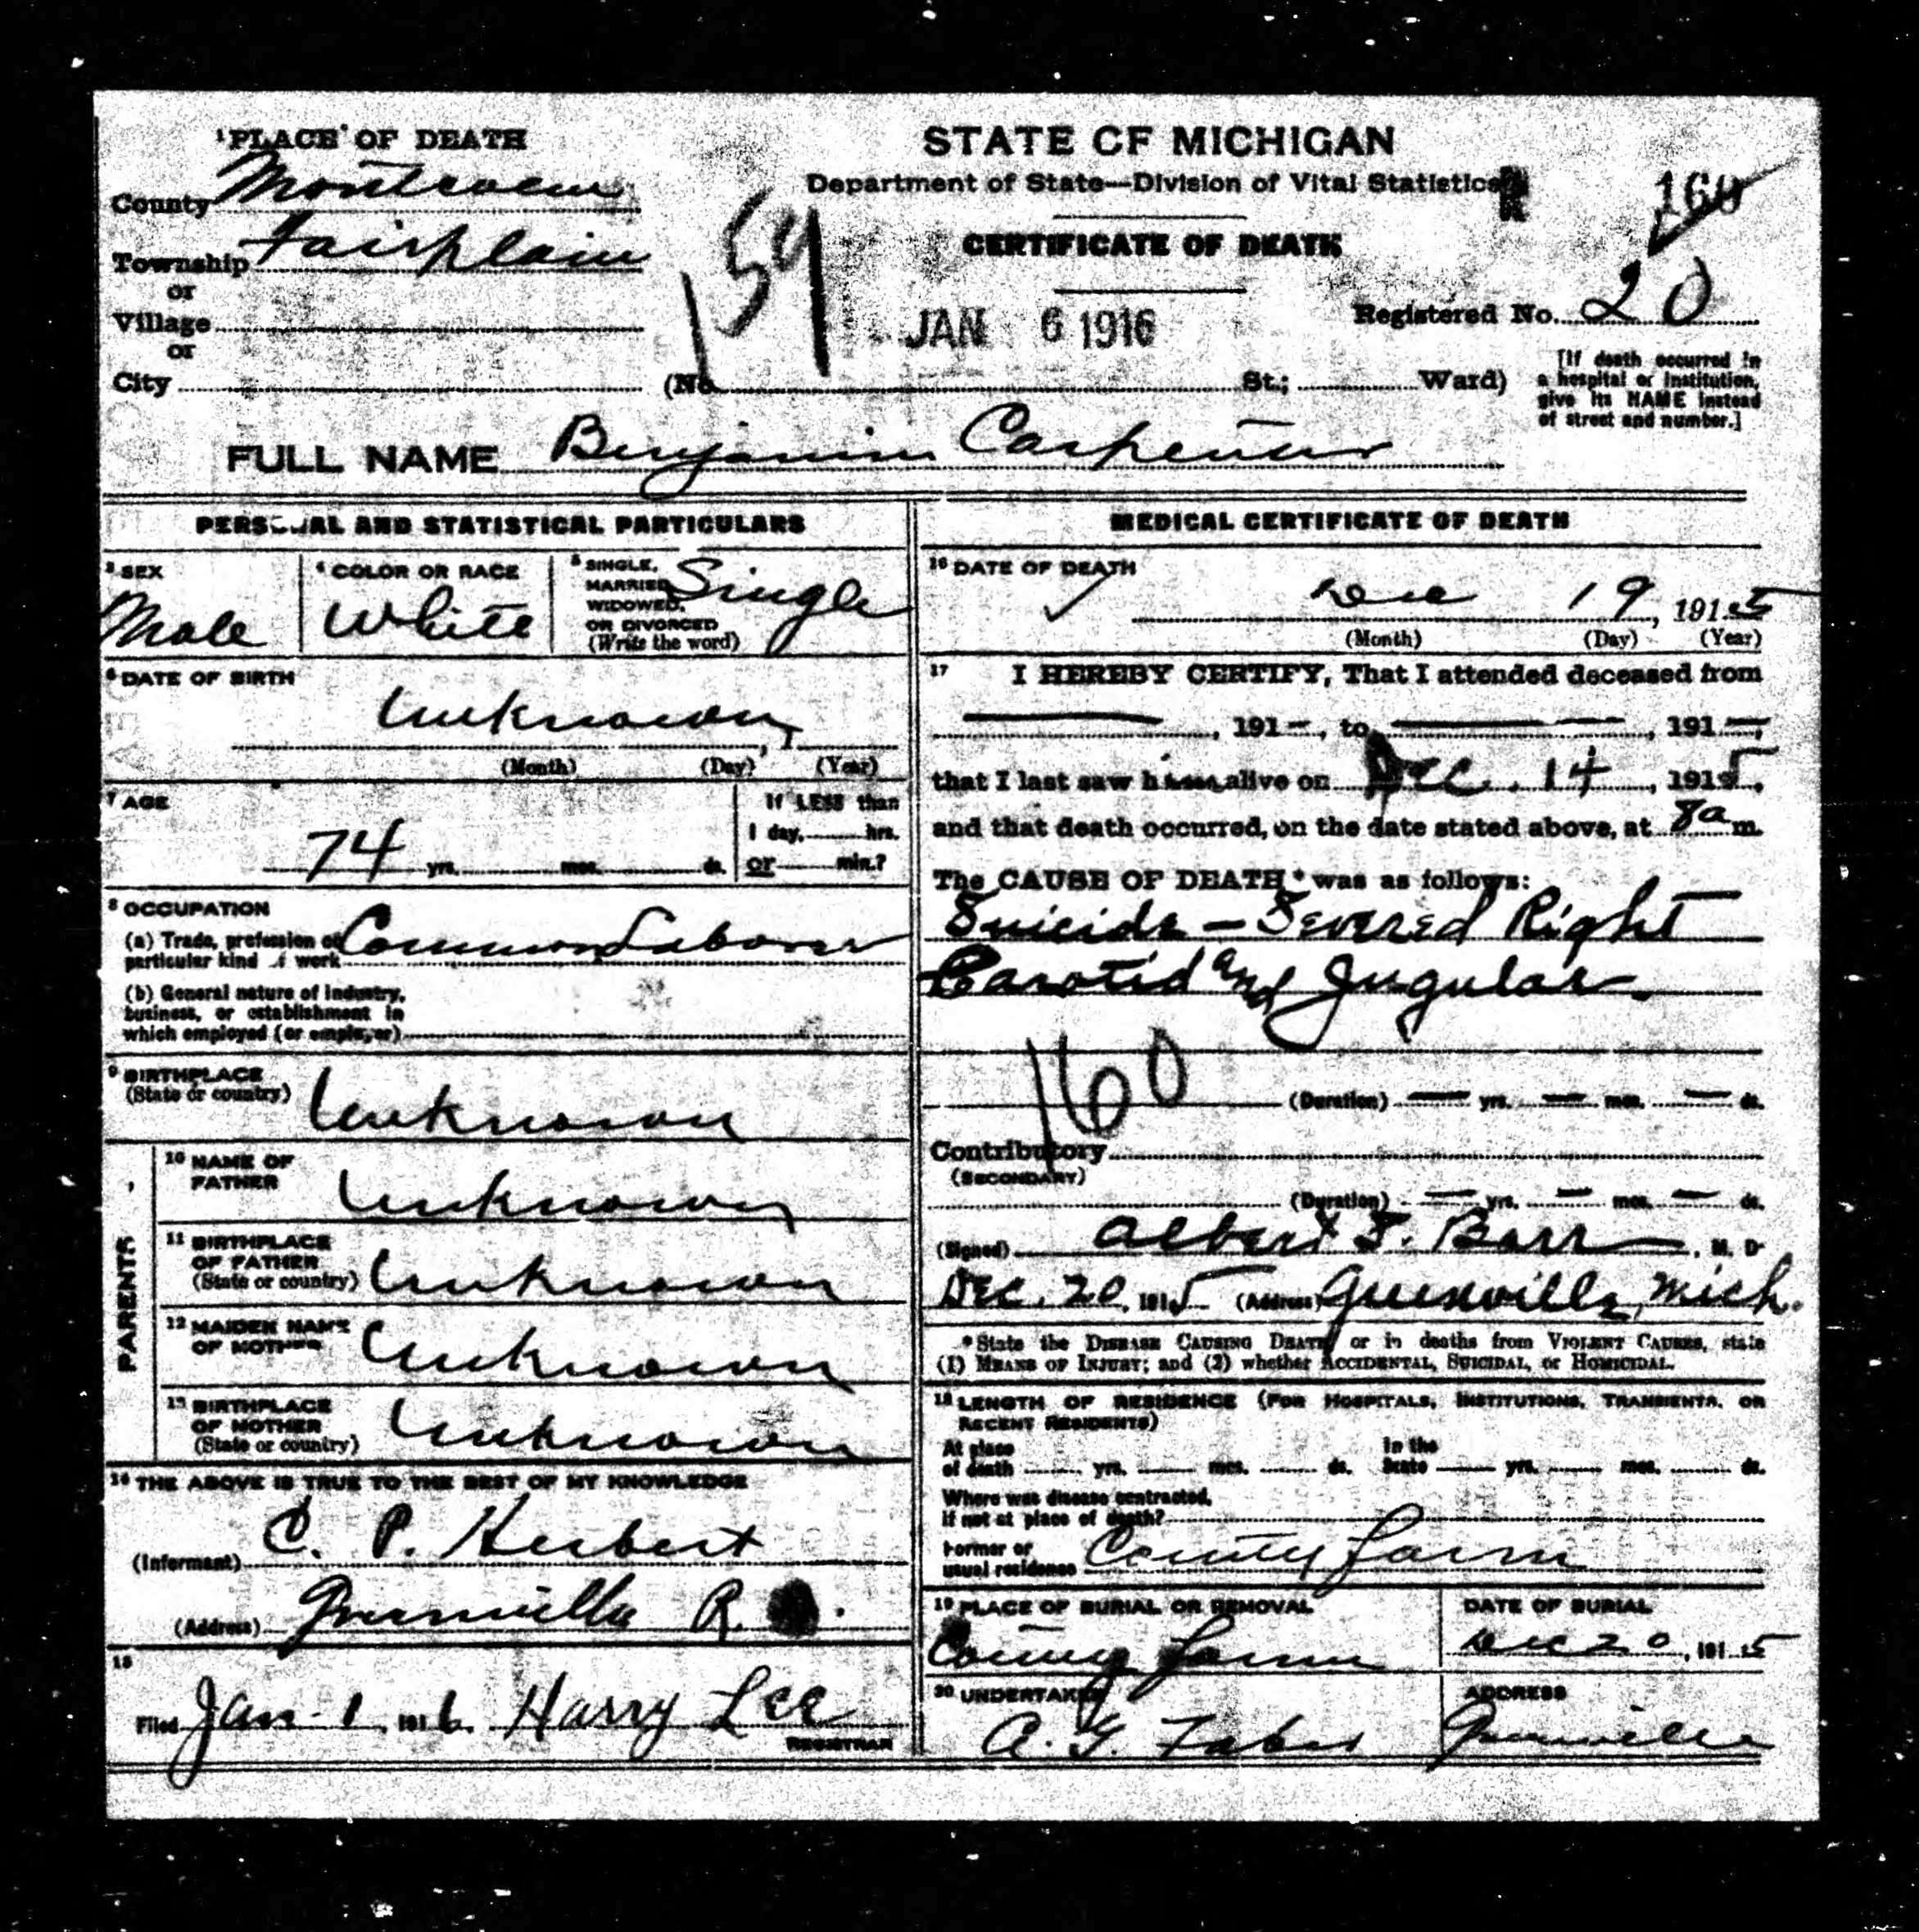 ¹PLACE OF DEATH
County Montcalm
Township Fairplain
or
Village
or
City
STATE OF MICHIGAN
Department of State—Division of Vital Statistics
CERTIFICATE OF DEATH
159
JAN 6 1916
160
Registered No. 20
(No. St.; Ward)
[If death occurred in
a hospital or institution,
give its NAME instead
of street and number.]
FULL NAME Benjamin Carpenter
PERSONAL AND STATISTICAL PARTICULARS
³ SEX
Male
⁴ COLOR OR RACE
White
⁵ SINGLE,
MARRIED,
WIDOWED,
OR DIVORCED
(Write the word)
Single
⁶ DATE OF BIRTH
Unknown
(Month) (Day) (Year)
⁷ AGE
74 yrs. mos. ds.
If LESS than
1 day, hrs.
or min.?
⁸ OCCUPATION
(a) Trade, profession or
particular kind of work Common Laborer
(b) General nature of industry,
business, or establishment in
which employed (or employer)
⁹ BIRTHPLACE
(State or country) Unknown
PARENTS
¹⁰ NAME OF
FATHER Unknown
¹¹ BIRTHPLACE
OF FATHER
(State or country) Unknown
¹² MAIDEN NAME
OF MOTHER Unknown
¹³ BIRTHPLACE
OF MOTHER
(State or country) Unknown
¹⁴ THE ABOVE IS TRUE TO THE BEST OF MY KNOWLEDGE
(Informant) C. P. Herbert
(Address) Greenville R.
¹⁵
Filed Jan 1, 1916. Harry Lee
REGISTRAR
MEDICAL CERTIFICATE OF DEATH
¹⁶ DATE OF DEATH
Dec 19, 1915
(Month) (Day) (Year)
¹⁷ I HEREBY CERTIFY, That I attended deceased from
—, 191–, to —, 191–,
that I last saw him alive on Dec. 14, 1915,
and that death occurred, on the date stated above, at 8a m.
The CAUSE OF DEATH* was as follows:
Suicide – Severed Right
Carotid and Jugular.
160
(Duration) — yrs. — mos. — ds.
Contributory
(SECONDARY)
(Duration) — yrs. — mos. — ds.
(Signed) Albert F. Barr, M. D.
Dec. 20, 1915 (Address) Greenville, Mich.
*State the DISEASE CAUSING DEATH, or in deaths from VIOLENT CAUSES, state
(1) MEANS OF INJURY; and (2) whether ACCIDENTAL, SUICIDAL, or HOMICIDAL.
¹⁸ LENGTH OF RESIDENCE (FOR HOSPITALS, INSTITUTIONS, TRANSIENTS, OR
RECENT RESIDENTS)
At place
of death yrs. mos. ds.
In the
State yrs. mos. ds.
Where was disease contracted,
if not at place of death?
Former or
usual residence County farm
¹⁹ PLACE OF BURIAL OR REMOVAL
County farm
DATE OF BURIAL
Dec 20, 1915
²⁰ UNDERTAKER
A. G. Faber
ADDRESS
Greenville